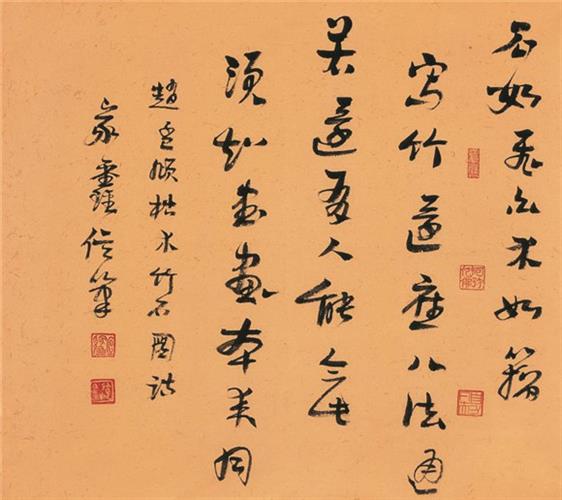 石如飛白木如籀
寫竹還應八法通
若還有人能會此
須知書畫本來同
趙孟頫枯木竹石圖詩
家信筆